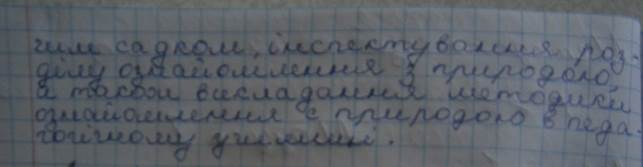 чим садком, інспектування роз-
ділу ознайомлення з природою,
а також викладання методики
ознайомлення с природою в педа
гогічному училищі.